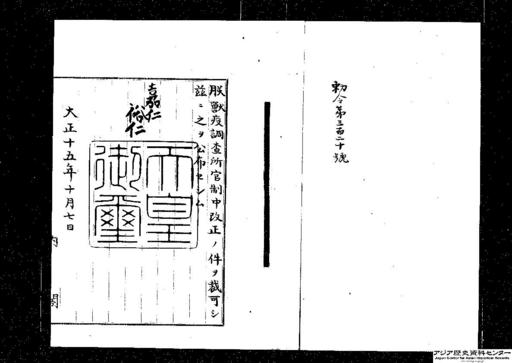 勅令第三百二十號
朕獸疫調査所官制中改正ノ件ヲ裁可シ
茲ニ之ヲ公布セシム
嘉仁
裕仁
天皇
御璽
大正十五年十月七日
内閣
アジア歴史資料センター
Japan Center for Asian Historical Records